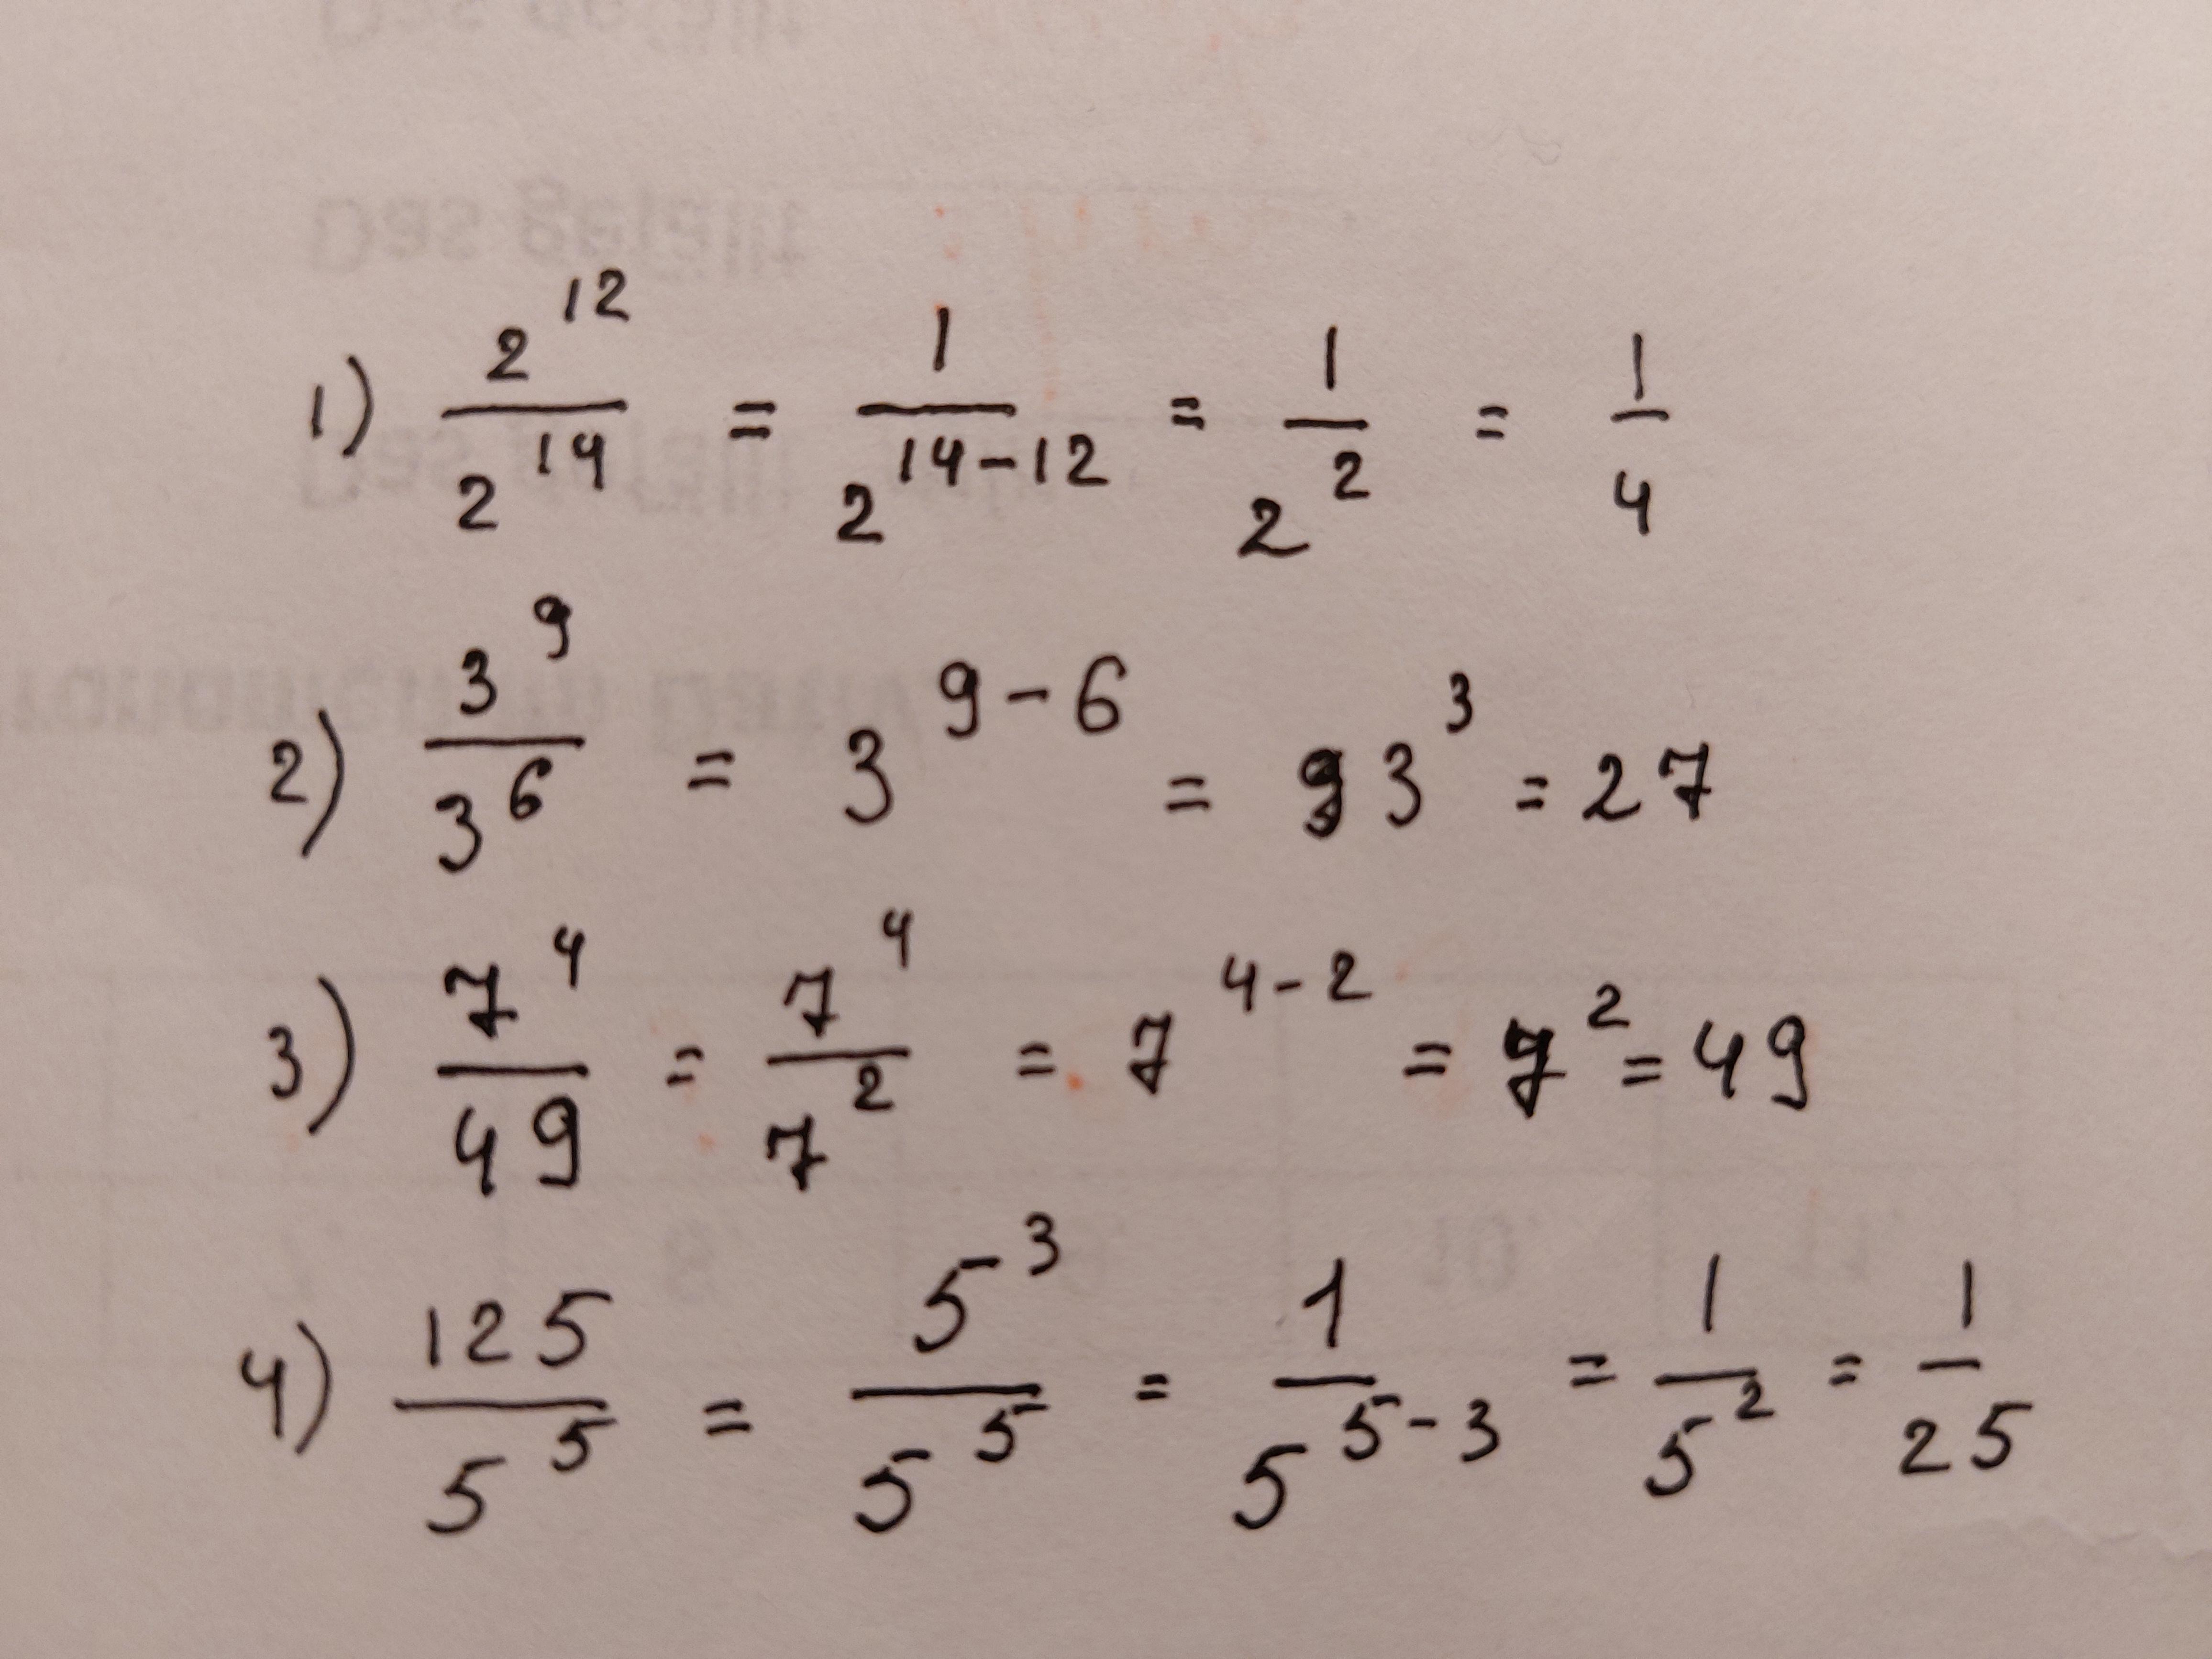 Das gefällt
Das gefällt
Das gefällt
1) 2^12/2^14 = 1/2^(14-12) = 1/2^2 = 1/4
2) 3^9/3^6 = 3^(9-6) = 3^3 = 27
3) 7^4/49 = 7^4/7^2 = 7^(4-2) = 7^2 = 49
4) 125/5^5 = 5^3/5^5 = 1/5^(5-3) = 1/5^2 = 1/25